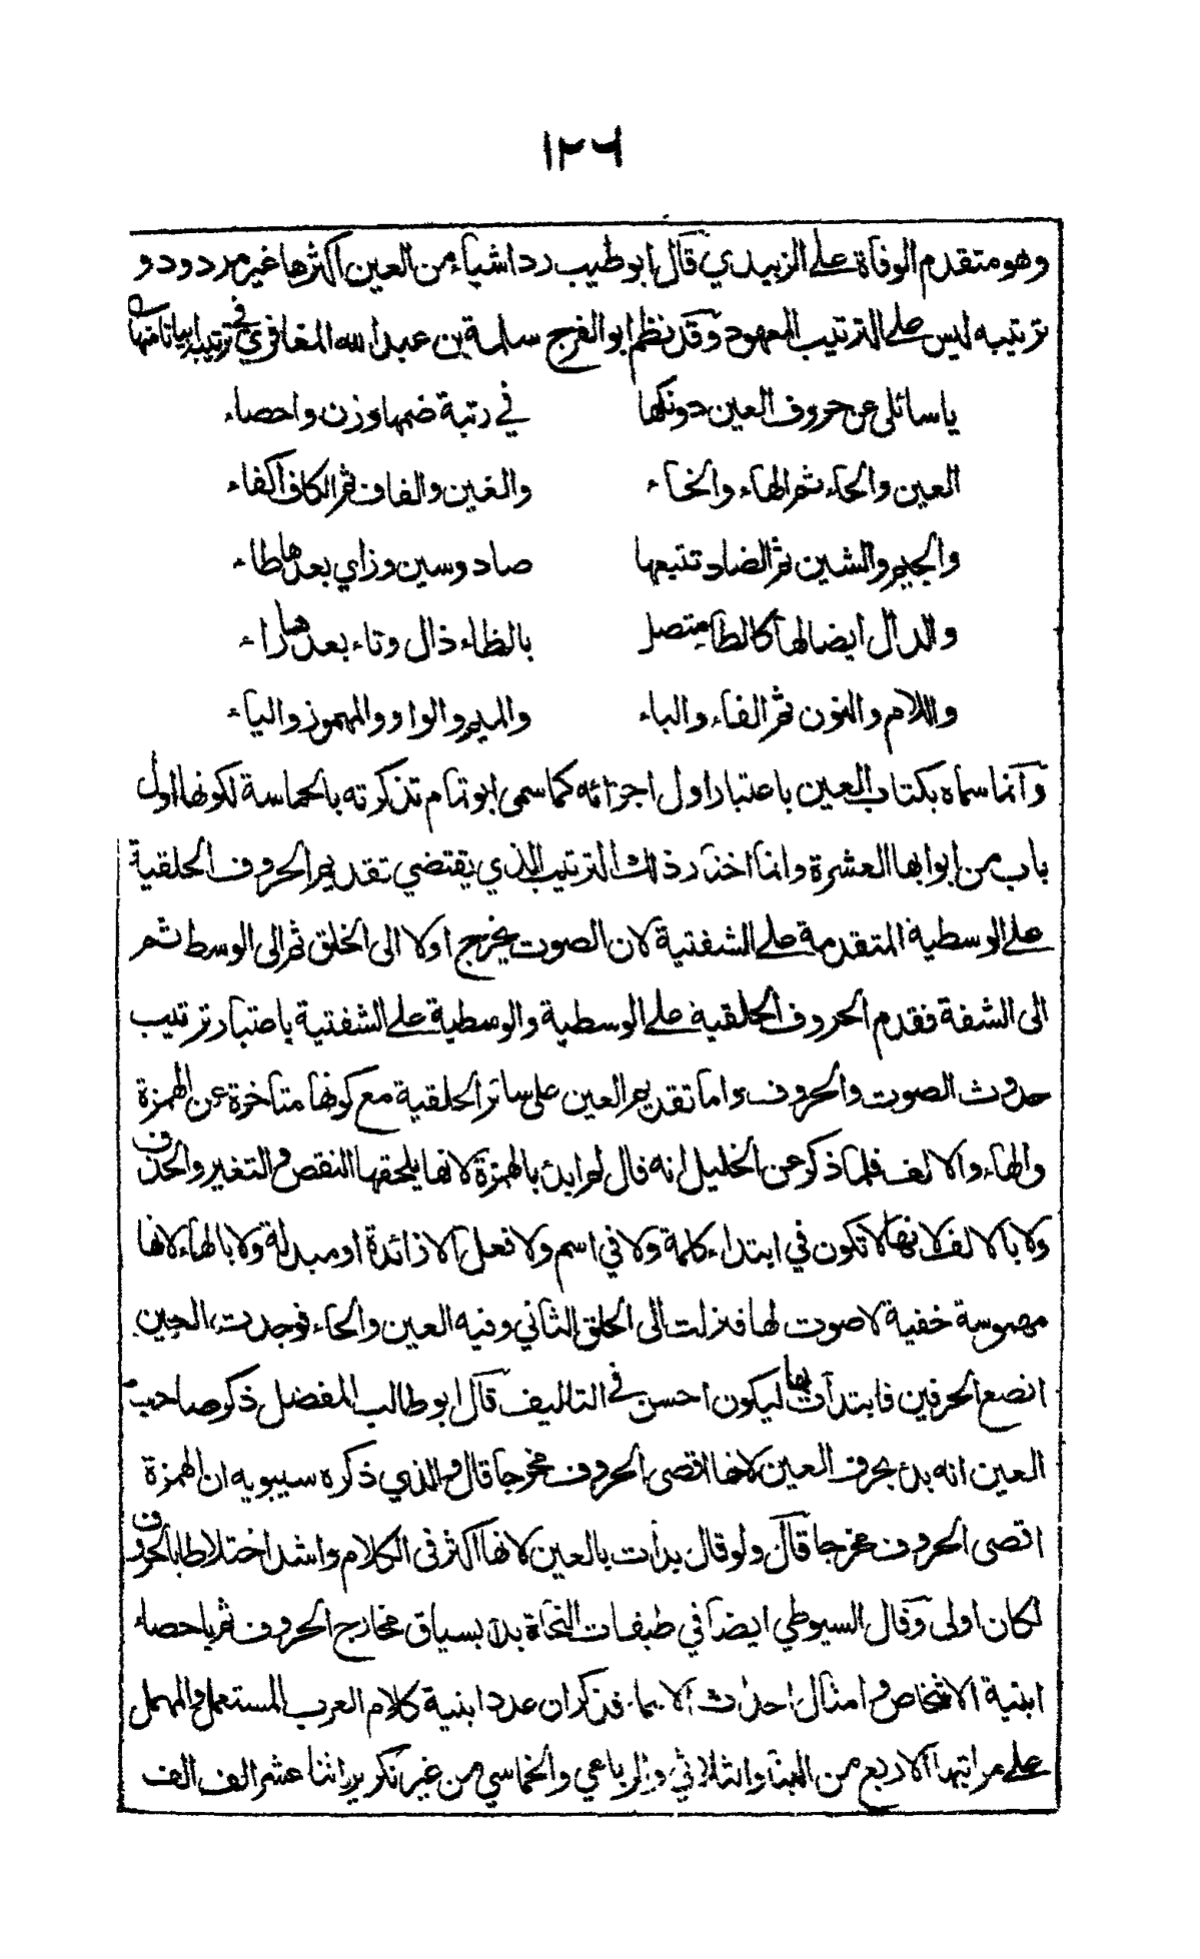 ١٢٦
وهو متقدم الوفاة على الزبيدي قال ابو طيب رد اشياء من العين اكثرها غير مردود و
ترتيبه ليس على الترتيب المعهود وقد نظم ابو الفرج سلمة بن عبد الله المغافري في ترتيبه ابياتا منها
يا سائلى عن حروف العين دونكها في رتبة ضمها وزن واحصاء
العين والحاء ثم الهاء والخاء والغين والقاف ثم الكاف اكفاء
والجيم والشين ثم الضاد تتبعها صاد وسين وزاي بعدها طاء
والدال ايضا لها كالطاء متصل بالظاء ذال وثاء بعدها راء
واللام والنون ثم الفاء والباء والميم والواو والمهموز والياء
وانما سماه بكتاب العين باعتبار اول اجزائه كما سمى ابو تمام تذكرته بالحماسة لكونها اول
باب من ابوابها العشرة وانما اختار ذلك الترتيب الذي يقتضي تقديم الحروف الحلقية
على الوسطية المتقدمة على الشفتية لان الصوت يخرج اولا الى الخلق ثم الى الوسط ثم
الى الشفة فقدم الحروف الحلقية على الوسطية والوسطية على الشفتية باعتبار ترتيب
حدوث الصوت والحروف واما تقديم العين على سائر الحلقية مع كونها متاخرة عن الهمزة
والهاء والالف فلما ذكر عن الخليل انه قال لم ابدئ بالهمزة لانها يلحقها النقص والتغير والحذف
ولا بالالف لانها لا تكون في ابتداء كلمة ولا في اسم ولا فعل الا زائدة او مبدلة ولا بالهاء لانها
مهموسة خفية لا صوت لها فنزلت الى الحلق الثاني وفيه العين والحاء فوجدت العين
انصع الحرفين فابتدأت بها ليكون احسن في التاليف قال ابو طالب المفضل ذكر صاحب
العين انه بدء بحرف العين لانها اقصى الحروف مخرجا قال والذي ذكره سيبويه ان الهمزة
اقصى الحروف مخرجا قال ولو قال بدأت بالعين لانها اكثر فى الكلام واشد اختلاطا بالحروف
لكان اولى وقال السيوطي ايضا في طبقات النحاة بدأ بسياق مخارج الحروف ثم باحصاء
ابنية الاشخاص وامثال احداث الاسماء فذكر ان عدد ابنية كلام العرب المستعمل والمهمل
على مراتبها الاربع من الثنا والثلاثي والرباعي والخماسي من غير تكرير اثنا عشر الف الف